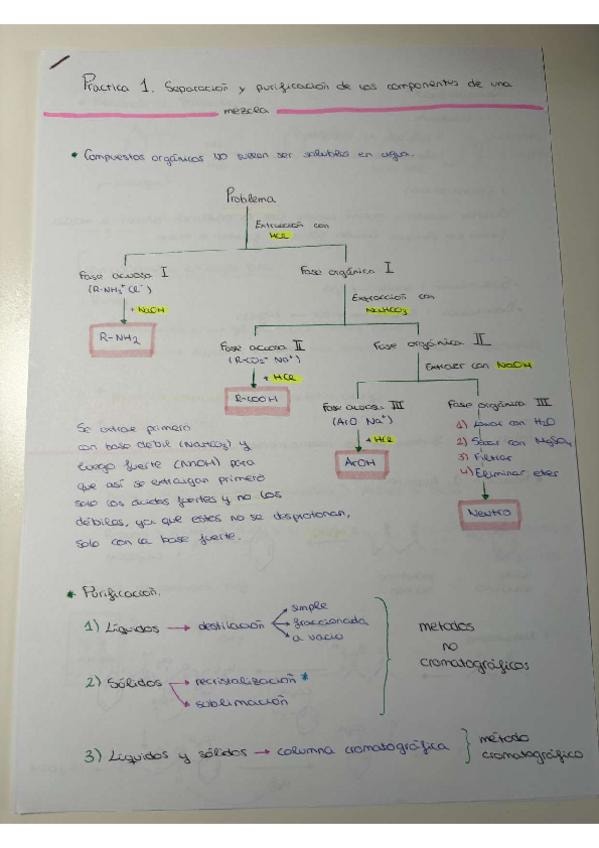 Practica 1. Separación y purificación de los componentes de una
mezcla
• Compuestos orgánicos no suelen ser solubles en agua.
Problema
Extracción con
HCl
Fase acuosa I
(R-NH3+ Cl-)
Fase orgánica I
+ NaOH
Extracción con
NaHCO3
R-NH2
Fase acuosa II
(R-CO2- Na+)
Fase orgánica II
+ HCl
Extraer con NaOH
R-COOH
Fase acuosa III
(ArO Na+)
Fase orgánica III
+ HCl
ArOH
1) Lavar con H2O
2) Secar con MgSO4
3) Filtrar
4) Eliminar eter
Neutro
Se extrae primero
con base débil (NaHCO3) y
luego fuerte (NaOH) para
que así se extraigan primero
solo los ácidos fuertes y no los
débiles, ya que estos no se desprotonan,
solo con la base fuerte.
* Purificación.
1) Líquidos → destilación
simple
fraccionada
a vacio
2) Sólidos
recristalización *
sublimación
metodos
no
cromatográficos
3) Líquidos y sólidos → columna cromatográfica
método
cromatográfico